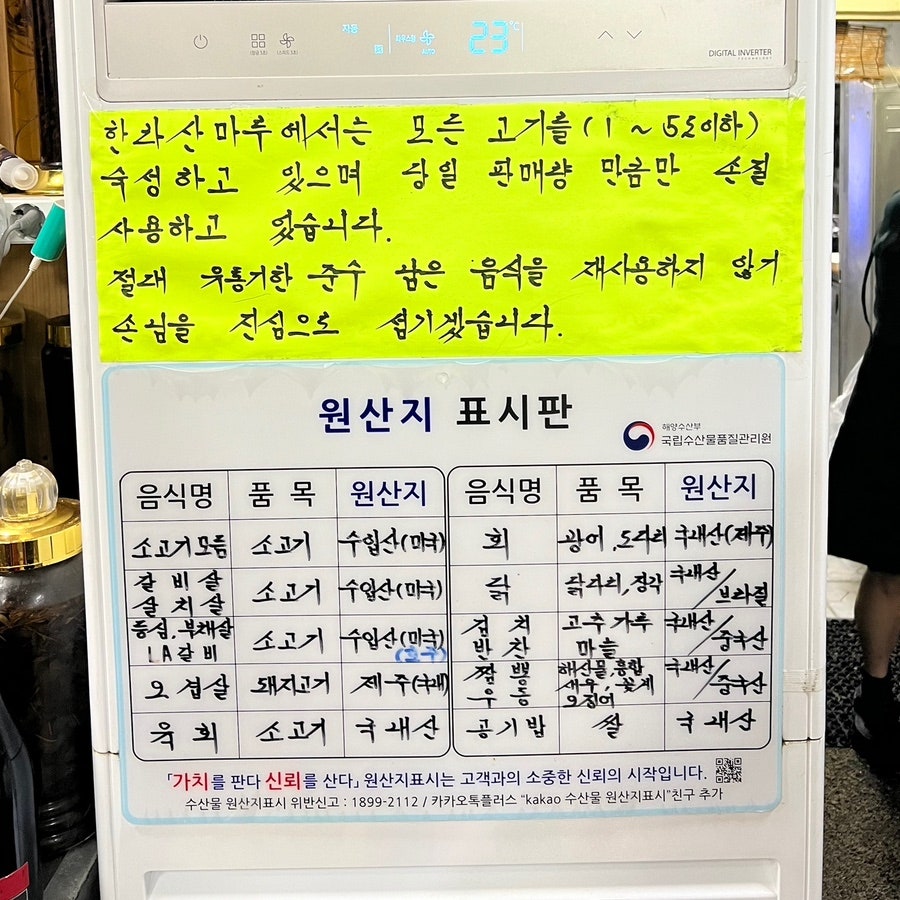 자동
23°C
AUTO
DIGITAL INVERTER
TECHNOLOGY
한라산마루에서는 모든 고기를 (1~5도이하)
숙성하고 있으며 당일 판매량 만큼만 손질
사용하고 있습니다.
절대 유통기한 준수 남은 음식을 재사용하지 않기
손님을 진심으로 섬기겠습니다.
원산지 표시판
해양수산부
국립수산물품질관리원
음식명 품 목 원산지 음식명 품 목 원산지
소고기모듬 소고기 수입산(미국) 회 광어, 도다리 국내산(제주)
갈비살 살치살 소고기 수입산(미국) 닭 닭다리, 장각 국내산/브라질
등심, 부채살 LA갈비 소고기 수입산(미국) (호주) 김치 반찬 고추가루 마늘 국내산/중국산
오겹살 돼지고기 제주(국내) 짬뽕 우동 해산물, 홍합, 새우, 꽃게 오징어 국내산/중국산
육회 소고기 국내산 공기밥 쌀 국내산
「가치를 판다 신뢰를 산다」 원산지표시는 고객과의 소중한 신뢰의 시작입니다.
수산물 원산지표시 위반신고 : 1899-2112 / 카카오톡플러스 "kakao 수산물 원산지표시"친구 추가